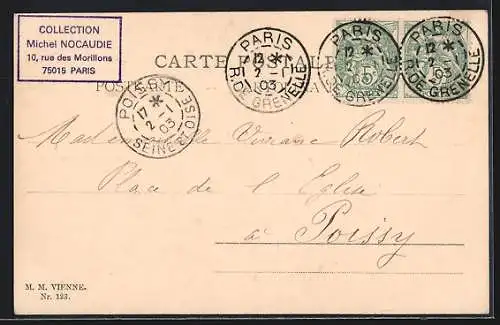 COLLECTION
Michel NOCAUDIE
10, rue des Morillons
75015 PARIS
PARIS
12 *
2 - 1
03
R. DE GRENELLE
PARIS
12 *
5
R. DE GRENELLE
PARIS
12 *
2 - 1
03
R. DE GRENELLE
CARTE
POISSY
17 *
2 - 1
03
SEINE ET OISE
Mademoiselle Viviane Robert
Place de l'Eglise
à Poissy
M. M. VIENNE.
Nr. 123.